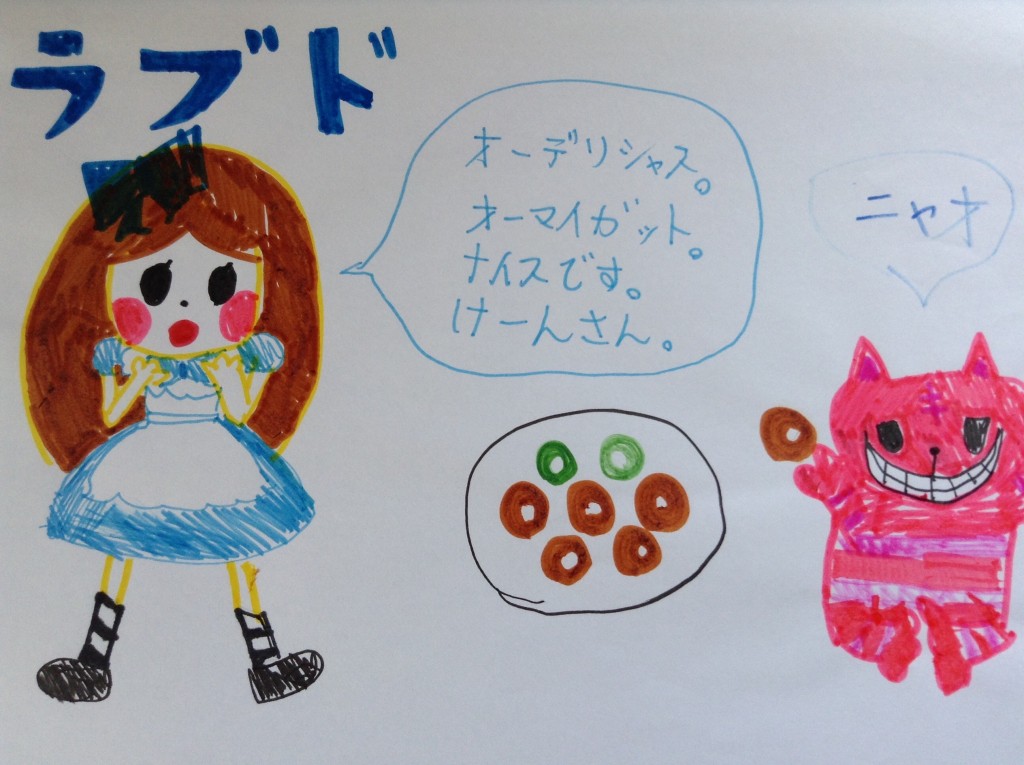 ラブド
オーデリシャス。
オーマイガット。
ナイスです。
けーんさん。
ニャオ